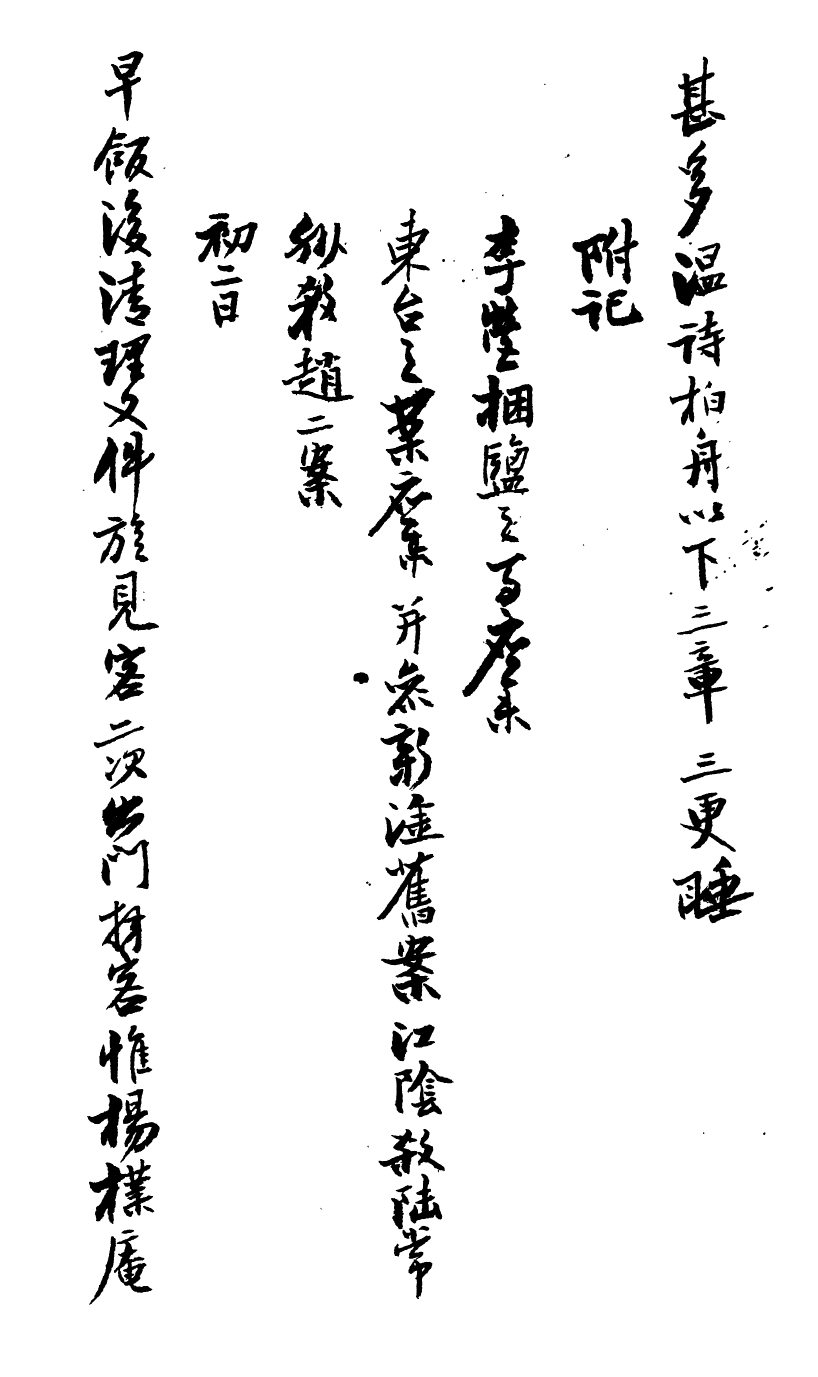 甚多溫詩柏舟以下三章三更睡
附記
李瑩捆鹽之事應奏
東台之葉應奏并參新淦舊案江陰殺陸常
熟殺趙二案
初二日
早飯後清理文件旋見客二次出門拜客惟楊樸庵